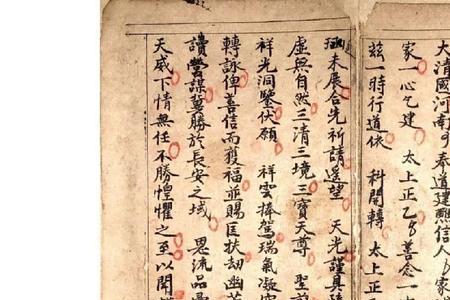 大清國河南 奉道建醮信人
家一心乞建 太上正乙 善念一
茲一時行道休 科開轉 太上正
函未展合先祈請遥望 天光謹具
虛無自然三清三境三寶天尊 聖
祥光洞鑒伏願 祥雲捧駕瑞氣凝
轉詠俾善信而獲福並賜匡扶劫幽
讀營謀冀勝於長安之域 恩流品
天威下情無任不勝惶懼之至以聞